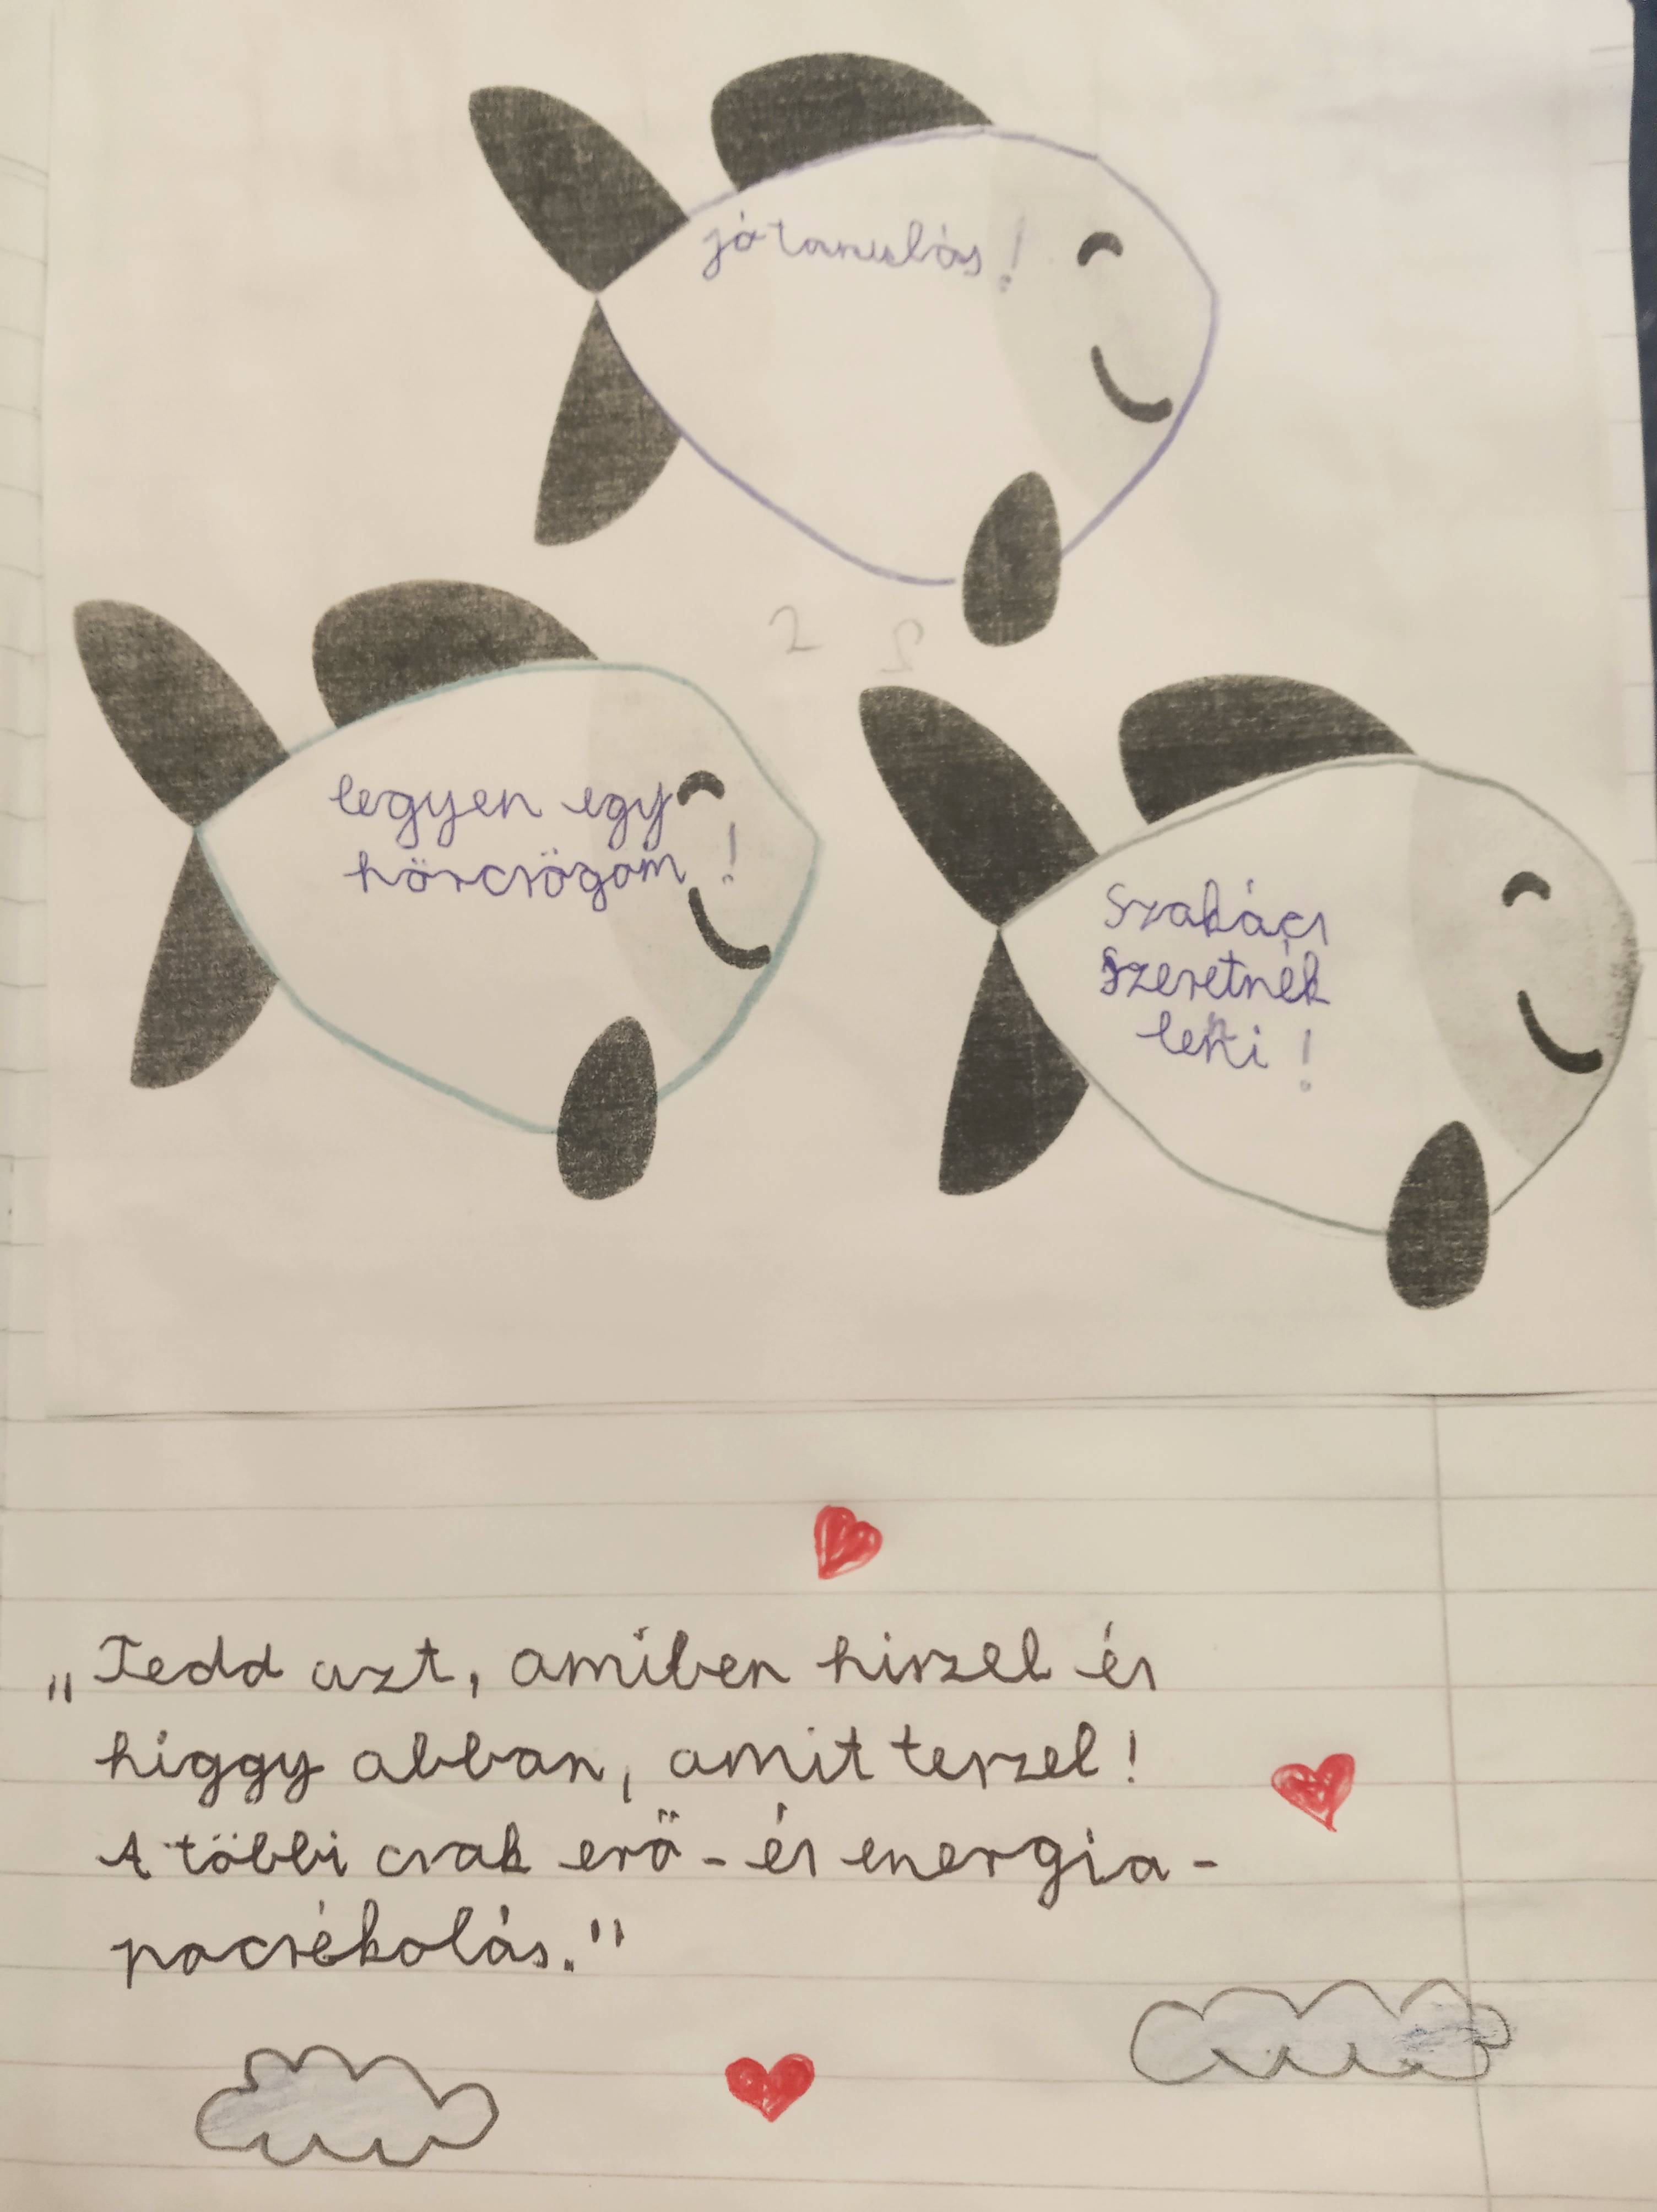 jó tanulás!
legyen egy
hörcsögöm!
Szakács
szeretnék
lenni!
„Tedd azt, amiben hiszel és
higgy abban, amit teszel!
A többi csak erő- és energia-
pocsékolás."